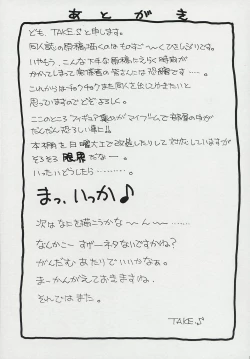 あとがき
ども、TAKE♪と申します。
同人誌の原稿描くのはものすご〜くひさしぶりです。
いやもう、こんな下手な原稿にえらく時間が
かかってしまって関係者の皆さんには恐縮です…。
これからはチョクチョクまた同人を出してみたいと
思っていますのでどぞよろしく。
ここのところフィギュア集めがマイブームで部屋の中が
だんだん恐ろしい事に!!
本棚を日曜大工で改造したりして対抗していますが
そろそろ限界だなー。
いったいどうしたら………。
まっ、いっか♪
次はなにを描こうかな〜ん〜……
なんかこー すげーネタないですかね?
がんだむあたりでいいかなぁ。
まーかんがえておきますね。
それではまた。
TAKE♪